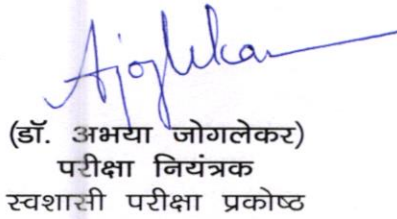 Ajoglekar
(डॉ. अभया जोगलेकर)
परीक्षा नियंत्रक
स्वशासी परीक्षा प्रकोष्ठ